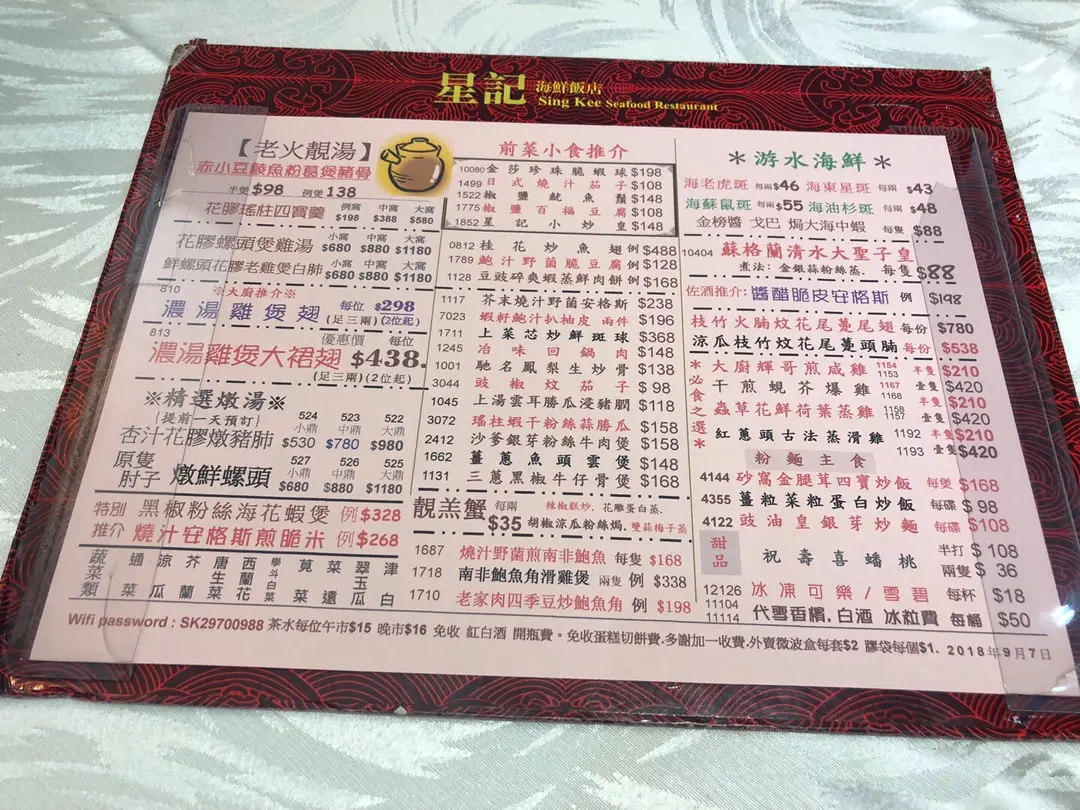 星記 海鮮飯店
Sing Kee Seafood Restaurant
【老火靚湯】
赤小豆鯪魚粉葛煲豬骨
半煲 $98 例煲 138
例窩 中窩 大窩
花膠瑤柱四寶羹 $198 $388 $580
小窩 中窩 大窩
花膠螺頭煲雞湯 $680 $880 $1180
小窩 中窩 大窩
鮮螺頭花膠老雞煲白肺 $680 $880 $1180
810 ※大廚推介※
濃湯雞煲翅 每位 $298
(足三兩)(2位起)
813 優惠價 每位
濃湯雞煲大裙翅 $438.
(足三兩)(2位起)
※精選燉湯※
(提前一天預訂)
524 523 522
小鼎 中鼎 大鼎
杏汁花膠燉豬肺 $530 $780 $980
527 526 525
原隻肘子 燉鮮螺頭 小鼎 中鼎 大鼎
$680 $880 $1180
特別推介
黑椒粉絲海花蝦煲 例 $328
燒汁安格斯煎脆米 例 $268
蔬菜類
通菜 涼瓜 芥蘭 唐生菜 西蘭花 學斗白菜 莧菜 翠玉瓜 津白
前菜小食推介
10080 金莎珍珠脆蝦球 $198
1499 日式燒汁茄子 $108
1522 椒鹽魷魚鬚 $148
1775 椒鹽百福豆腐 $108
1852 星記小炒皇 $148
0812 桂花炒魚翅 例 $488
1789 鮑汁野菌脆豆腐 例 $128
1128 豆豉碎爽蝦蒸鮮肉餅 例 $168
1117 芥末燒汁野菌安格斯 $238
7023 蝦籽鮑汁扒柚皮 兩件 $196
1711 上菜芯炒鮮斑球 $368
1245 冶味回鍋肉 $148
1001 馳名鳳梨生炒骨 $138
3044 豉椒炆茄子 $98
1045 上湯雲耳勝瓜浸豬膶 $118
3072 瑤柱蝦干粉絲蒜勝瓜 $158
2412 沙爹銀芽粉絲牛肉煲 $158
1662 薑蔥魚頭雲煲 $148
1131 三蔥黑椒牛仔骨煲 $168
靚羔蟹 每兩 $35 辣椒糕炒. 花雕蛋白蒸.
胡椒涼瓜粉絲焗. 雙蒜梅子蒸
1687 燒汁野菌煎南非鮑魚 每隻 $168
1718 南非鮑魚角滑雞煲 兩隻 例 $338
1710 老家肉四季豆炒鮑魚角 例 $198
＊游水海鮮＊
海老虎斑 每兩 $46 海東星斑 每兩 $43
海蘇鼠斑 每兩 $55 海油杉斑 每兩 $48
金榜醬 戈巴 焗大海中蝦 每隻 $88
10404 蘇格蘭清水大聖子皇
煮法: 金銀蒜粉絲蒸. 每隻 $88
佐酒推介: 醬醋脆皮安格斯 例 $198
枝竹火腩炆花尾躉尾翅 每份 $780
涼瓜枝竹炆花尾躉頭腩 每份 $538
＊必食之選＊
大廚輝哥煎咸雞 1154 半隻 $210
1153 壹隻 $420
干煎蜆芥爆雞 1167
1168 半隻 $210
蟲草花鮮荷葉蒸雞 1158
1157 壹隻 $420
紅蔥頭古法蒸滑雞 1192 半隻 $210
1193 壹隻 $420
粉麵主食
4144 砂窩金腿茸四寶炒飯 每煲 $168
4355 薑粒菜粒蛋白炒飯 每碟 $98
4122 豉油皇銀芽炒麵 每碟 $108
甜品 祝壽喜蟠桃 半打 $108
兩隻 $36
12126 冰凍可樂/雪碧 每杯 $18
11104
11114 代雪香檳,白酒 冰粒費 每桶 $50
Wifi password : SK29700988 茶水每位午市$15 晚市$16 免收 紅白酒 開瓶費。免收蛋糕切餅費.多謝加一收費.外賣微波盒每套$2 膠袋每個$1. 2018年9月7日